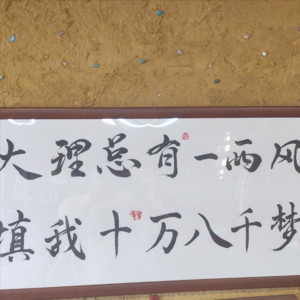 大理总有一两风
填我十万八千梦